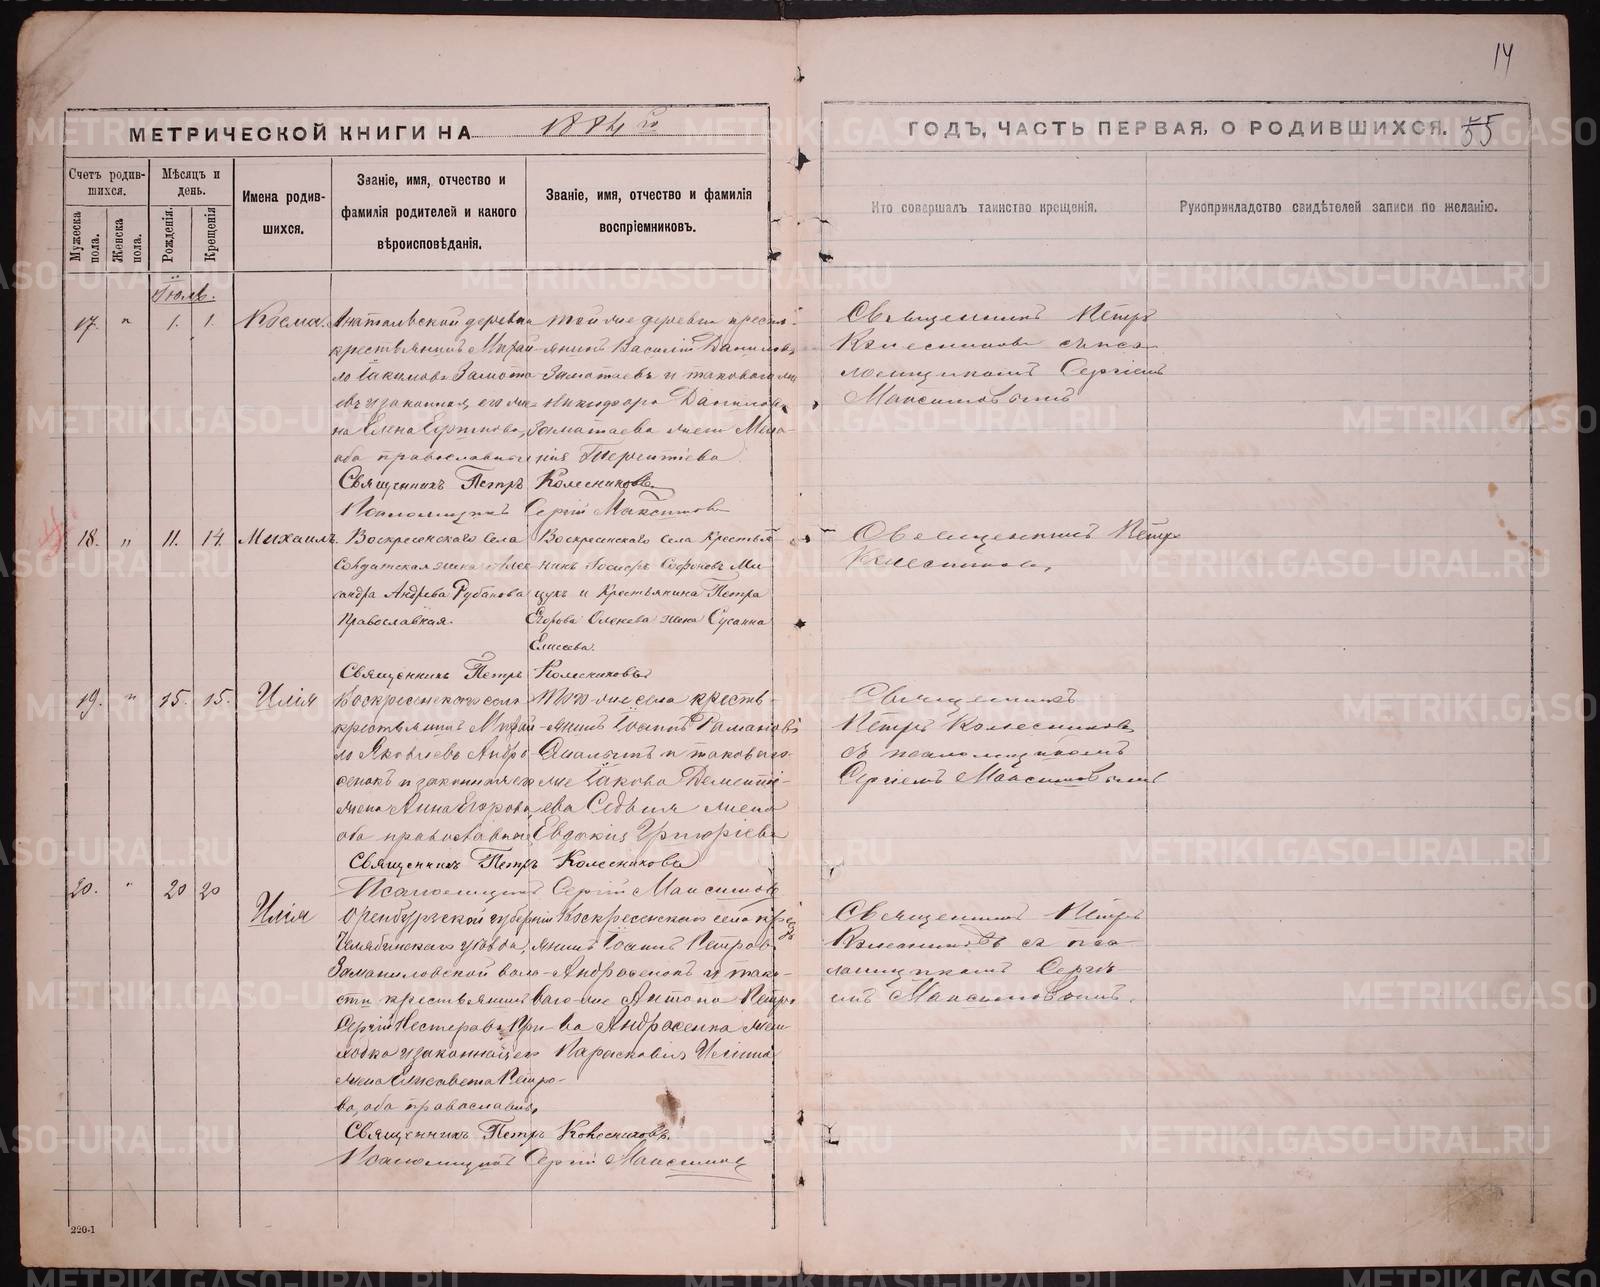 14
МЕТРИЧЕСКОЙ КНИГИ НА 1884 го
ГОДЪ, ЧАСТЬ ПЕРВАЯ, О РОДИВШИХСЯ. 55
Счетъ родившихся.
Мужеска пола.
Женска пола.
Мѣсяцъ и день.
Рожденія.
Крещенія
Имена родившихся.
Званіе, имя, отчество и фамилія родителей и какого вѣроисповѣданія.
Званіе, имя, отчество и фамилія воспріемниковъ.
Кто совершалъ таинство крещенія.
Рукоприкладство свидѣтелей записи по желанію.
Іюль.
17. " 1. 1. Косма.
деревни
крестьянинъ
и законная его же-
на Елена
оба православные
той же деревни кресть-
янинъ Василій Даниловъ
Заматаевъ и таковаго же
Никифора Данилова
Заматаева жена Мела-
нія Терентіева
Священникъ Петръ
Колесниковъ съ пса-
ломщикомъ Сергіемъ
Максимовымъ
Священникъ Петръ Колесниковъ
Псаломщикъ Сергій Максимовъ
18. " 11. 14. Михаилъ.
Воскресенскаго Села
Солдатская жена Алек-
сандра Андрѣева Рубанова
Православная.
Воскресенскаго Села Крестья-
нинъ Іосифъ Софоновъ Ми-
цухъ и Крестьянина Петра
Егорова жена Сусанна
Елисеева.
Священникъ Петръ
Колесниковъ,
Священникъ Петръ Колесниковъ
19. " 15. 15. Илія
Воскресенскаго села
крестьянинъ Михай-
ло Яковлевъ Андро-
сенокъ и законная его
жена Анна Егорова,
оба православные
Того же села кресть-
янинъ Іоаннъ Рамановъ
и таковаго
же Іакова Дементі-
ева Седыя жена
Евдокія Григоріева
Священникъ
Петръ Колесниковъ
съ псаломщикомъ
Сергіемъ Максимовымъ
Священникъ Петръ Колесниковъ
Псаломщикъ Сергій Максимовъ
20. " 20 20 Илія
Оренбургской губерніи
Челябинскаго уѣзда,
Заманиловской воло-
сти крестьянинъ
Сергій Нестеровъ При-
ходко и законная его
жена Елисавета Петро-
ва, оба православные,
Воскресенскаго села крес-
янинъ Іоаннъ Петровъ
Андросенокъ и тако-
ваго же Антона Петро-
ва Андросенка жена
Парасковія
Священникъ Петръ
Колесниковъ съ пса-
ломщикомъ Сергі-
емъ Максимовымъ.
Священникъ Петръ Колесниковъ.
Псаломщикъ Сергій Максимовъ
220-1
METRIKI.GASO-URAL.RU